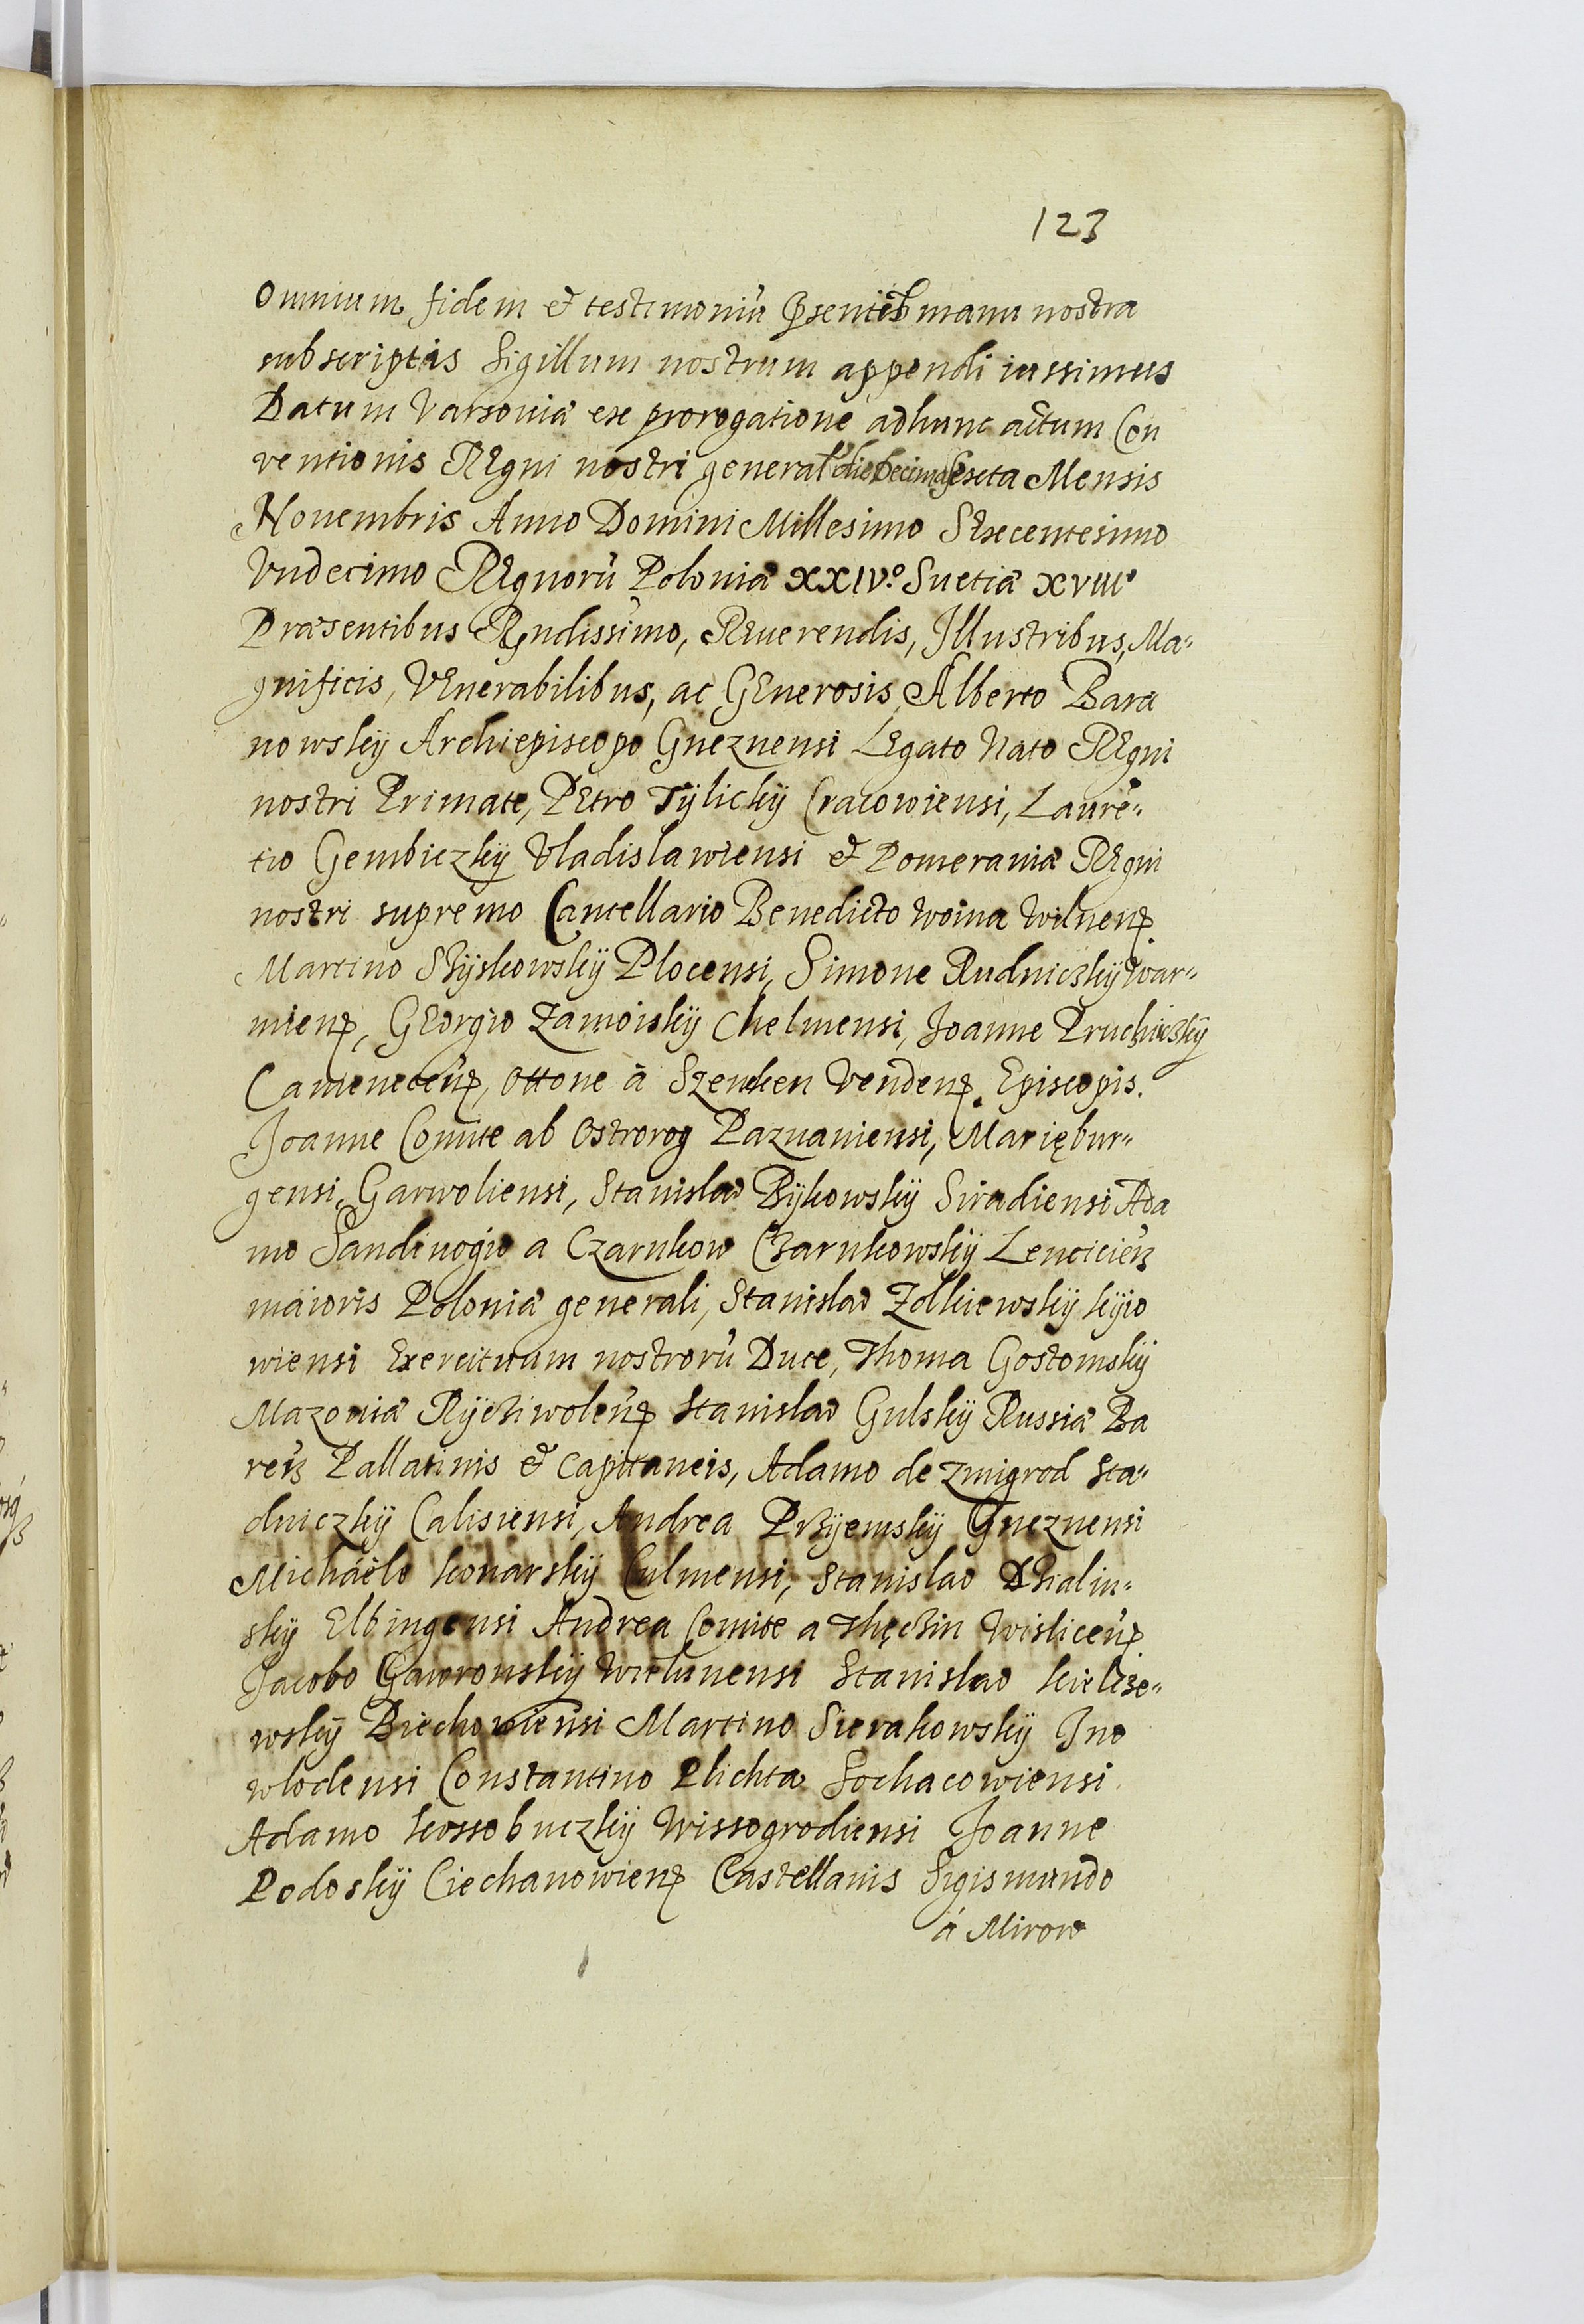 123
Omnium fidem et testimoniū Pṡentib manu nostra
subscriptis Sigillum nostrum appendi iussimus
Datum Varsoviæ ex prorogatione ad hunc actum Con
ventionis Regni nostri general die Decima Sexta Mensis
Nouembris Anno Domini Millesimo Sexcentesimo
Vndecimo Regnorū Poloniæ XXIV.º Suetiæ XVIIIº
Præsentibus Rndissimo, Reuerendis, Illustribus, Ma-
gnificis, Venerabilibus, ac Generosis Alberto Bara
nowskÿ Archiepiscopo Gneznensi Legato Nato Regni
nostri Primate, Petro Tÿlickÿ Cracowiensi, Laurē-
tio Gembiczkÿ Vladislawiensi et Pomeraniæ Regni
nostri supremo Cancellario Benedicto Woina Wilnenꝭ
Martino Szÿskowskÿ Plocensi, Simone Rudniczkÿ War-
mienꝭ, Georgio Zamoiskÿ Chelmensi, Joanne Pruchiczkÿ
Camenecenꝭ, Ottone à Szenken Vendenꝭ. Episcopis.
Joanne Comite ab Ostrorog Paznaniensi, Mariębur-
gensi, Garwoliensi, Stanislao Bÿkowskÿ Siradiensi Ada
mo Sandiuogio a Czarnkow Czarnkowskÿ Lenciciens
maioris Poloniæ generali, Stanislao Zolkiewskÿ kÿio
wiensi Exercituum nostrorū Duce, Thoma Gostomskÿ
Mazoviæ Rÿcziwolenꝭ Stanislao Gulskÿ Russiæ Ba
rens Pallatinis et Capitaneis, Adamo de Zmigrod Sta-
dniczkÿ Calisiensi, Andrea Przÿemskÿ Gneznensi
Michaële konarskÿ Culmensi, Stanislao Dzialin-
skÿ Elbingensi Andrea Comite a Thęczin Wislicenꝭ
Jacobo Gawronskÿ Wielunensi Stanislao kielcze-
wskÿ Biechowiensi Martino Sierakowskÿ Ino
wlodensi Constantino Plichta Sochacowiensi.
Adamo kossobuczkÿ Wissogrodiensi Joanne
Podoskÿ Ciechanowienꝭ Castellanis Sigismundo
á Mirow